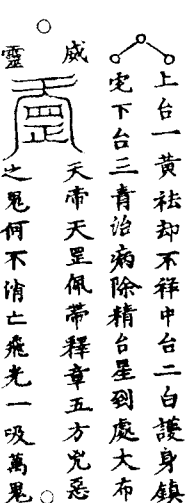 上台一黃祛却不祥中台二白護身鎮
宅下台三青治病除精台星到處大布
威
天帝天罡佩帶釋章五方兇惡
靈
之鬼何不消亡飛光一吸萬鬼